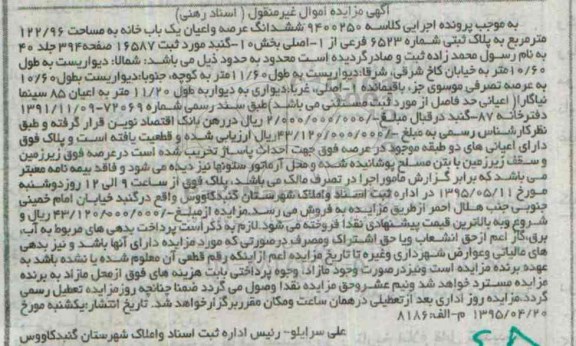 آگهی مزایده اموال غیرمنقول (اسناد رهنی)
به موجب پرونده اجرایی کلاسه ۹۴۰۰۲۵۰ ششدانگ عرصه واعیان یک باب خانه به مساحت ۱۲۲/۹۶
مترمربع به پلاک ثبتی شماره ۶۵۲۳ فرعی از ۱-اصلی بخش۱۰-گنبد مورد ثبت ۱۶۵۸۷ صفحه۳۹۴ جلد ۴۰
به نام رسول محمد زاده ثبت و صادرگردیده است محدود به حدود ذیل می باشد: شمالا: دیواریست به طول
۱۰/۶۰متر به خیابان کاخ شرقی، شرقا:دیواریست به طول۱۱/۶۰متر به کوچه، جنوبا:دیواریست بطول۱۰/۶۰
به عرصه تصرفی موسوی جز، باقیمانده ۱-اصلی، غربا:دیواری به دیواربه طول ۱۱/۲۰ متر به اعیان ۸۵ سینما
نیاگارا( اعیانی حد فاصل از مورد ثبت مستثنی می باشد)طبق سند رسمی شماره ۷۲۰۶۹-۱۳۹۱/۱۱/۰۹
دفترخانه ۸۷-گنبد درقبال مبلغ-/۲/۰۰۰/۰۰۰/۰۰۰ریال دررهن بانک اقتصاد نوین قرار گرفته و طبق
نظرکارشناس رسمی به مبلغ -/۴۳/۱۲۰/۰۰۰/۰۰۰ریال ارزیابی شده و قطعیت یافته است و پلاک فوق
دارای اعیانی های دو طبقه موجود در عرصه فوق جهت احداث پاساژ تخریب شده است درعرصه فوق زیرزمین
و سقف زیرزمین با بتن مسلح پوشانده شده و محل آرماتور ستونها نیز دیده می شود و فاقد بیمه نامه معتبر
می باشد که برابر گزارش مأموراجرا در تصرف مالک می باشد. پلاک فوق از ساعت ۹ الی ۱۲ روزدوشنبه
مورخ ۱۳۹۵/۰۵/۱۱ در اداره ثبت اسناد واملاک شهرستان گنبدکاووس واقع درگنبد خیابان امام خمینی
جنوبی جنب هلال احمر ازطریق مزایده به فروش می رسد.مزایده ازمبلغ-/۴۳/۱۲۰/۰۰۰/۰۰۰ ریال و
شروع وبه بالاترین قیمت پیشنهادی نقدا فروخته می شود.لازم به ذکراست پرداخت بدهی های مربوط به آب،
برق،گاز اعم از حق انشعاب ویا حق اشتراک ومصرف درصورتی که مورد مزایده دارای آنها باشد و نیز بدهی
های مالیاتی وعوارض شهرداری وغیره تا تاریخ مزایده اعم ازاینکه رقم قطعی آن معلوم شده یا نشده باشد به
عهده برنده مزایده است ونیزدرصورت وجود مازاد، وجوه پرداختی بابت هزینه های فوق ازمحل مازاد به برنده
مزایده مسترد خواهد شد ونیم عشروحق مزایده نقدا وصول می گردد ضمنا چنانچه روزمزایده تعطیل رسمی
گردد،مزایده روز اداری بعدازتعطیلی درهمان ساعت ومکان مقرربرگزارخواهد شد. تاریخ انتشار:یکشنبه مورخ
۱۳۹۵/۰۴/۲۰ م-الف:۸۱۸۶
علی سرایلو- رئیس اداره ثبت اسناد واملاک شهرستان گنبدکاووس